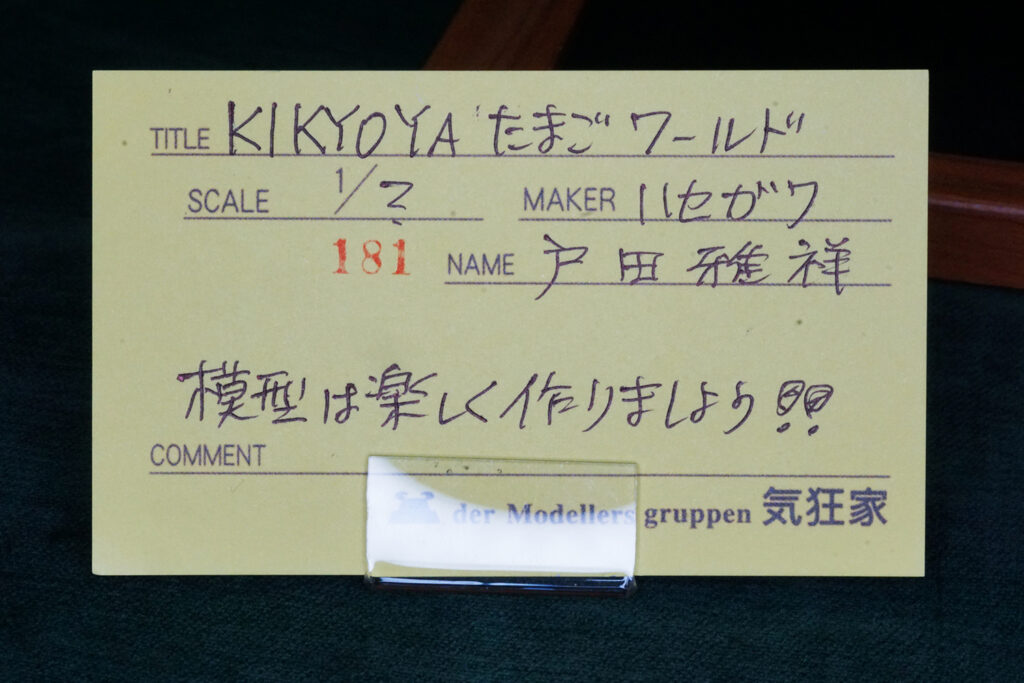 TITLE KIKYOYA たまごワールド
SCALE 1/? MAKER ハセガワ
181 NAME 戸田雅祥
模型は楽しく作りましょう!!
COMMENT
der Modellers gruppen 気狂家